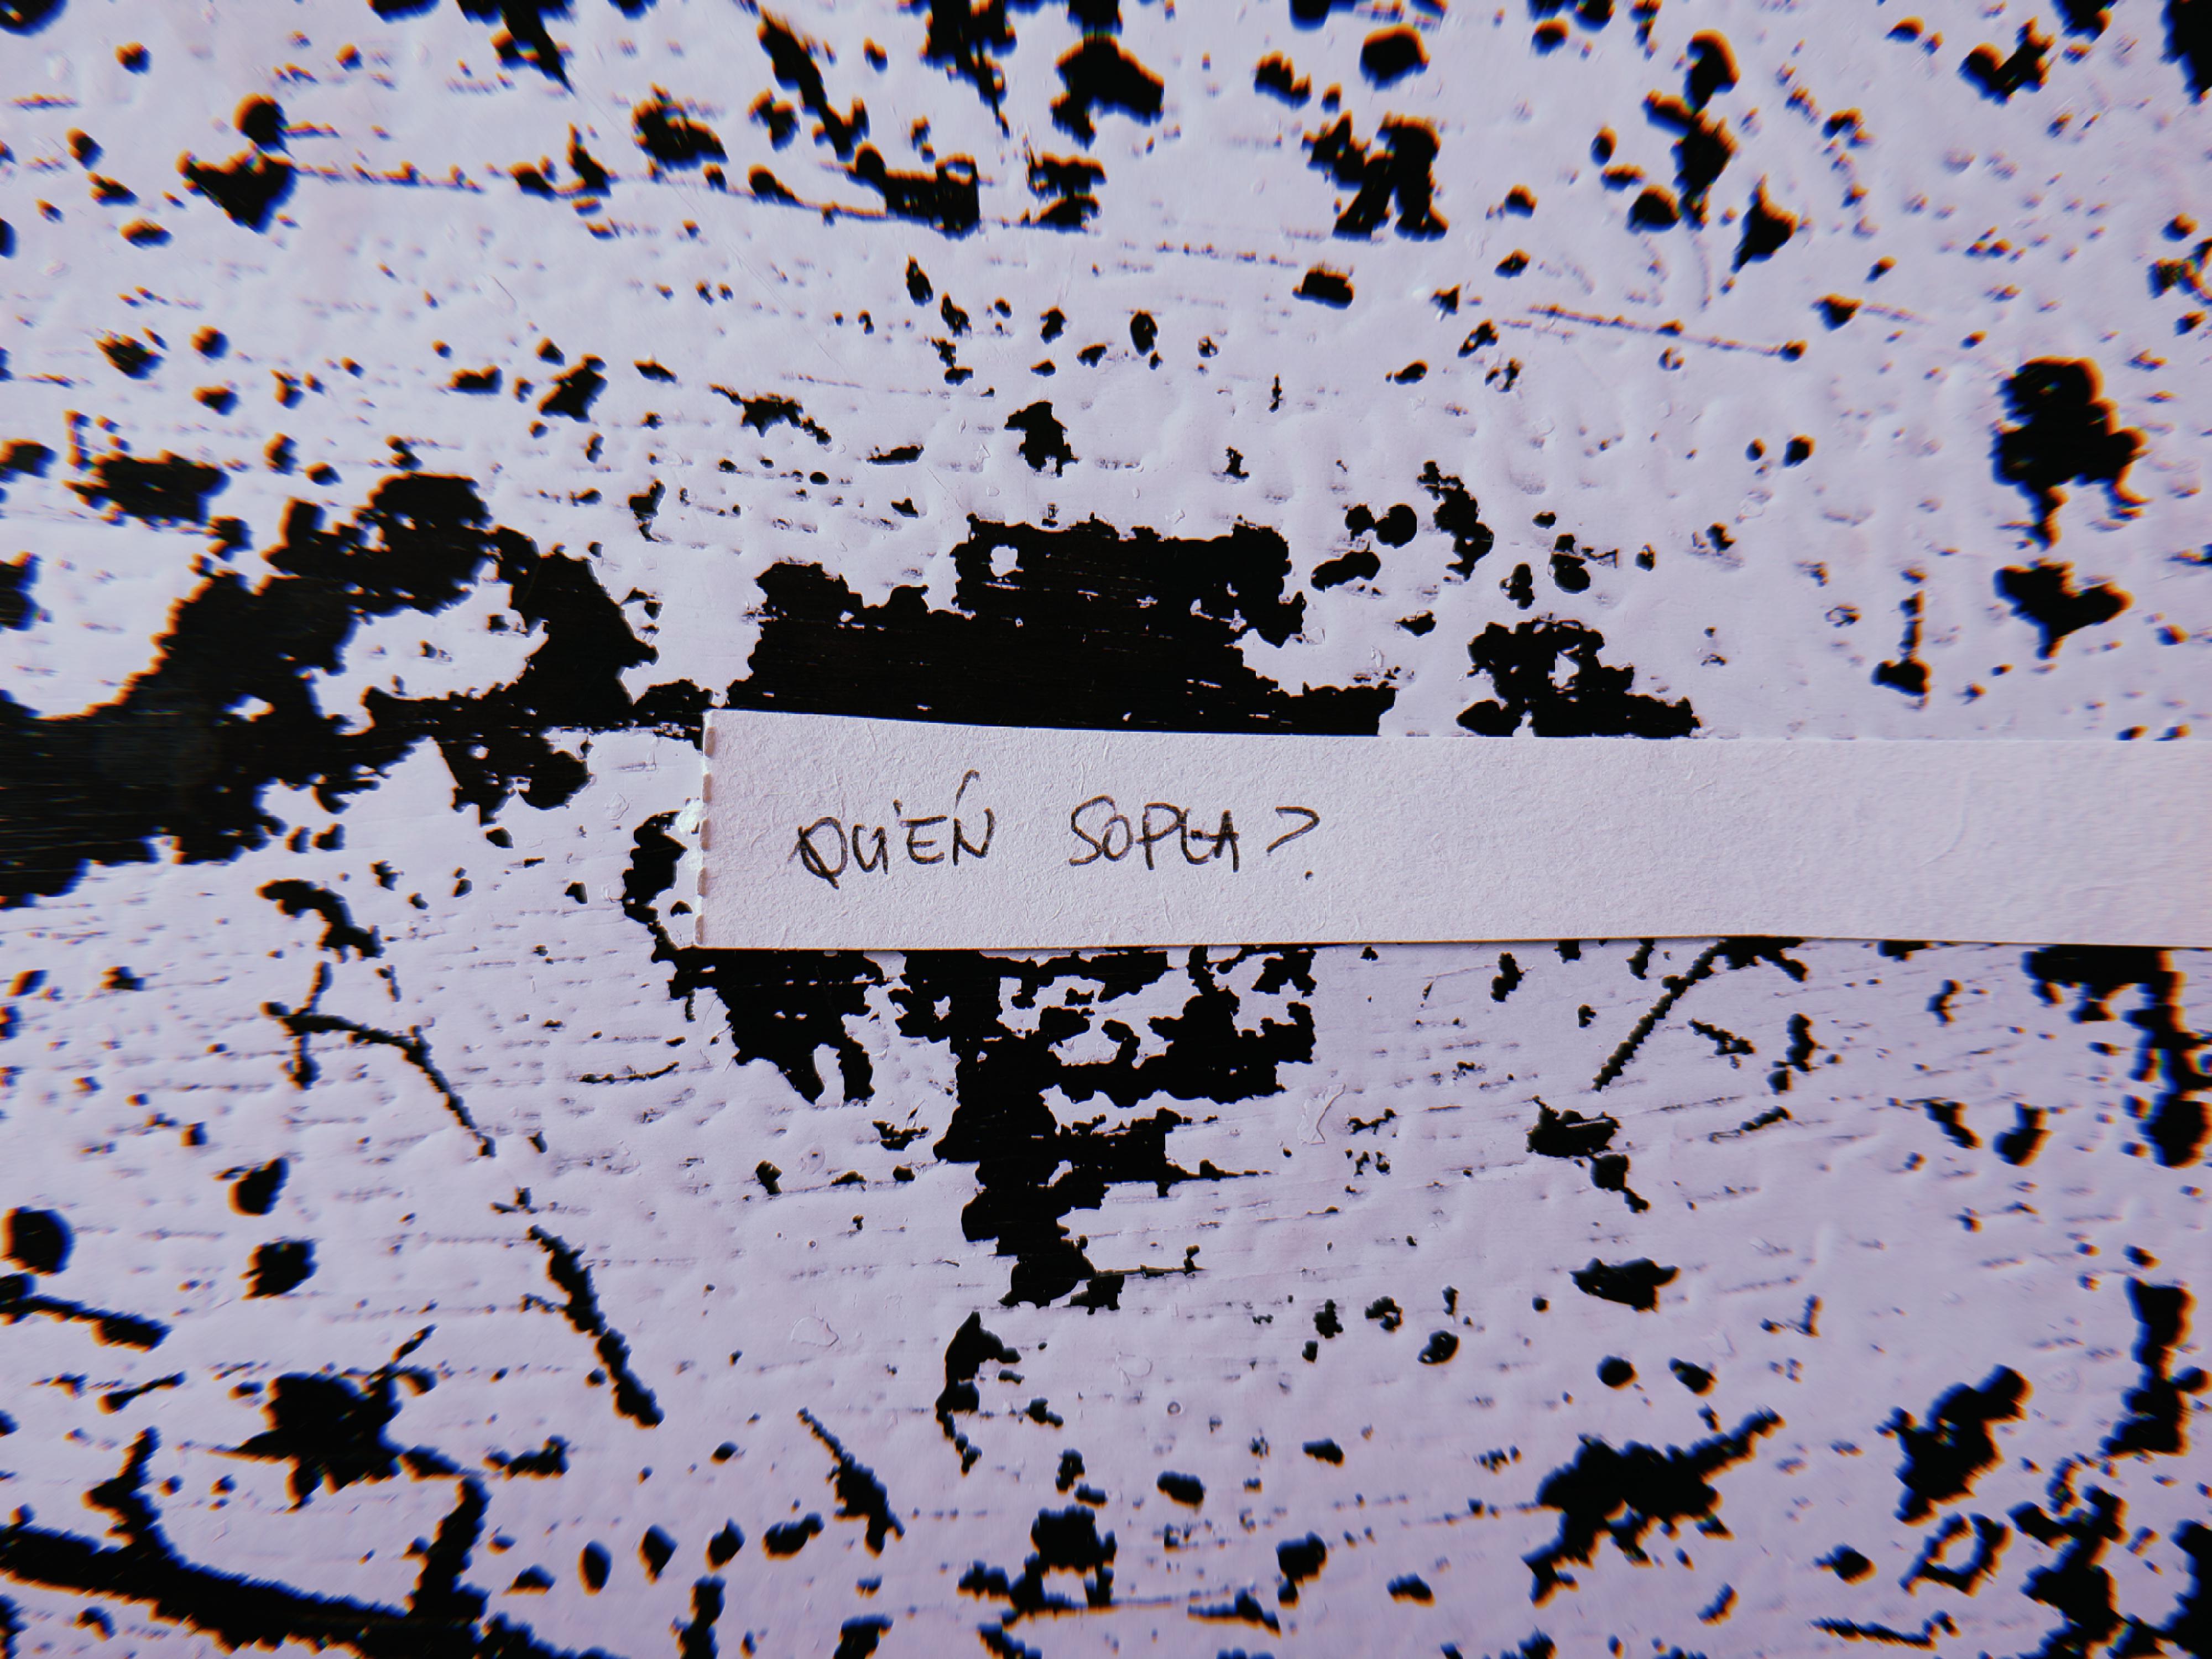 QUIÉN SOPLA?